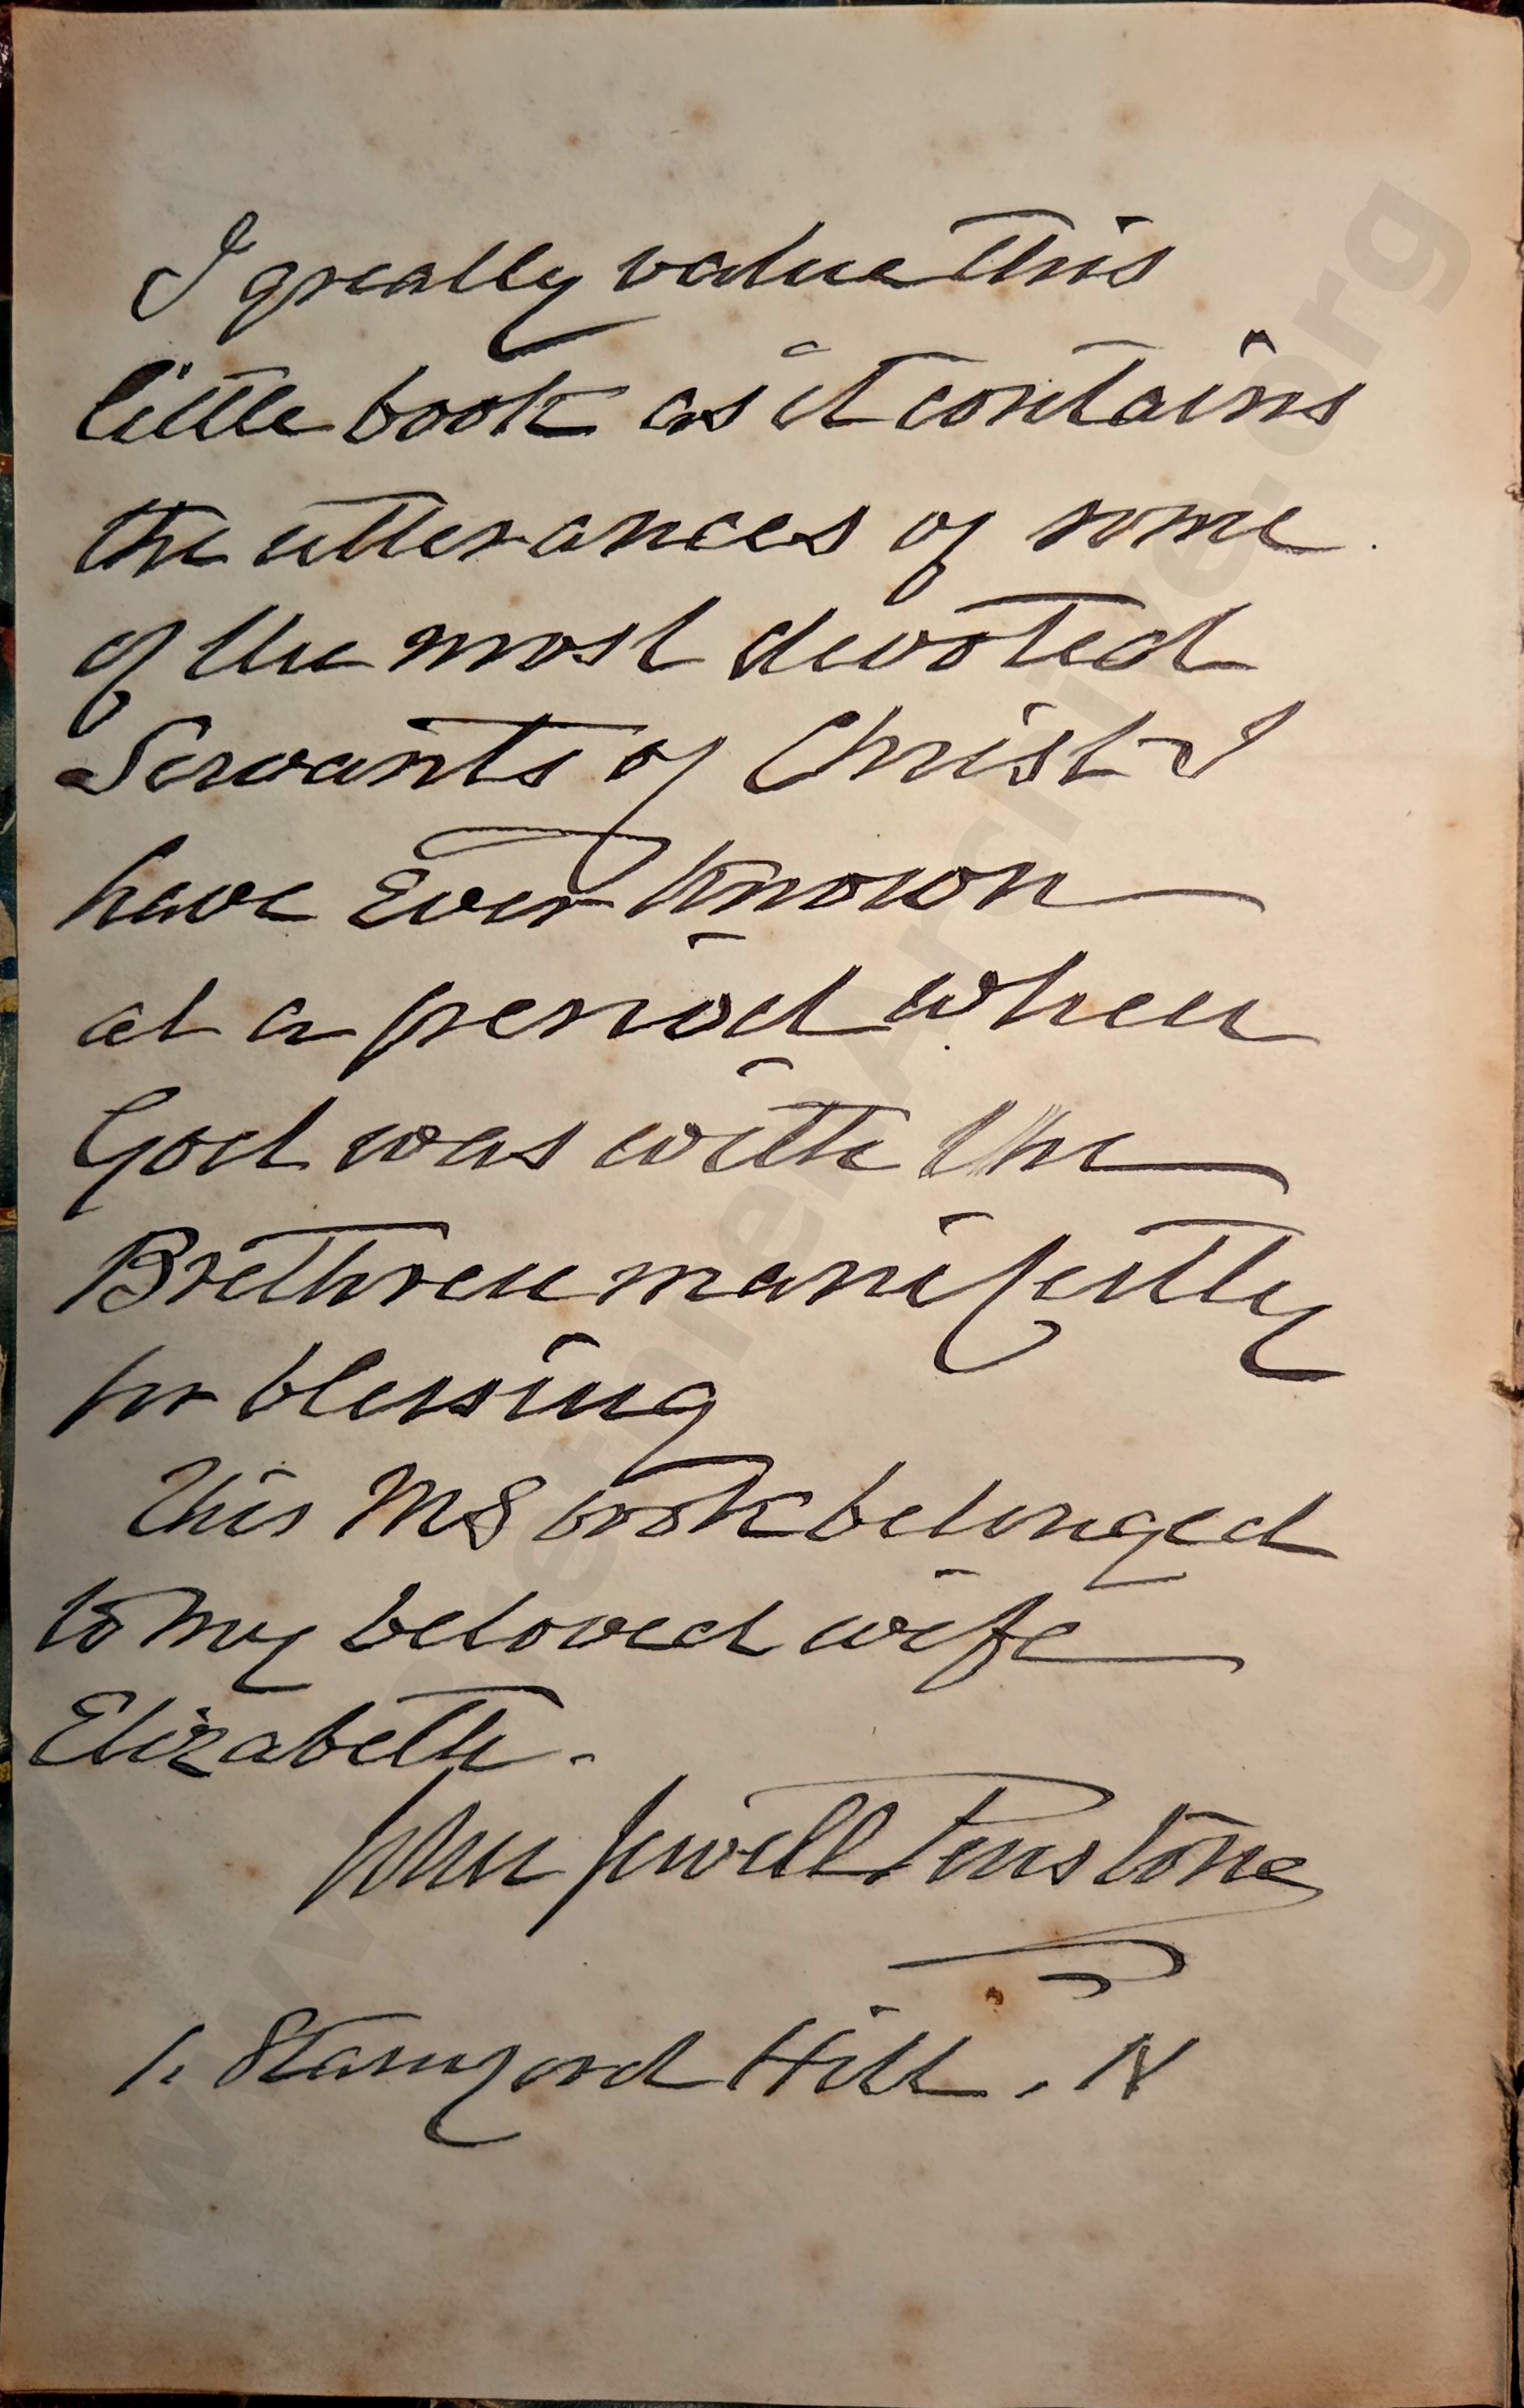 I greatly value this
little book as it contains
the utterances of some
of the most devoted
Servants of Christ I
have Ever known
at a period when
God was with the
Brethren manifestly
for blessing
This MS book belonged
to my beloved wife
Elizabeth.
John Jewell Penstone
1. Stamford Hill. N
www.BrethrenArchive.org